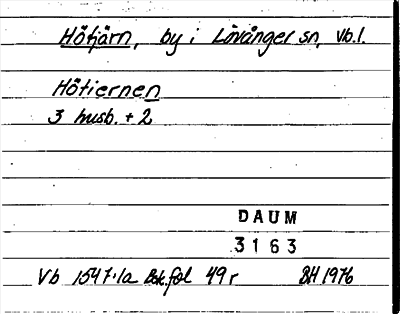 Hötjärn, by i Lövånger sn, Vb.l.
Hötiernen
3 husb. + 2
DAUM
3163
Vb 1547:1a Bok fol 49r BH 1976